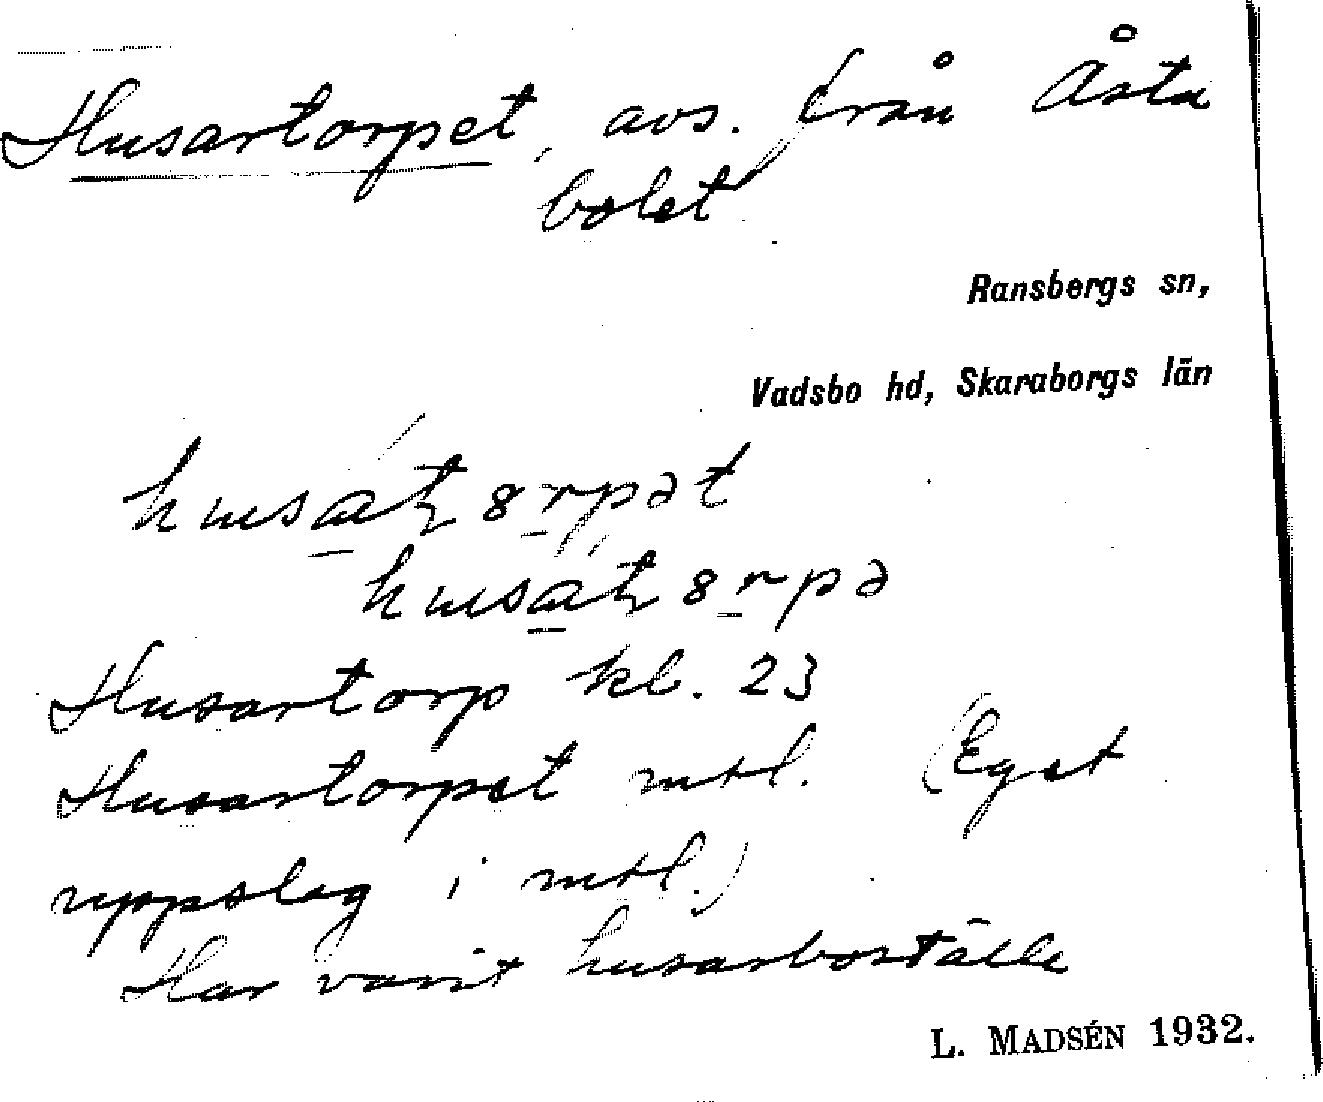 Husartorpet, avs. från Åsta
bolet
Ransbergs sn,
Vadsbo hd, Skaraborgs län
Husartorp kl. 23
Husartorpet mtl. (Eget
uppslag i mtl.)
Har varit husarboställe
L. MADSÉN 1932.